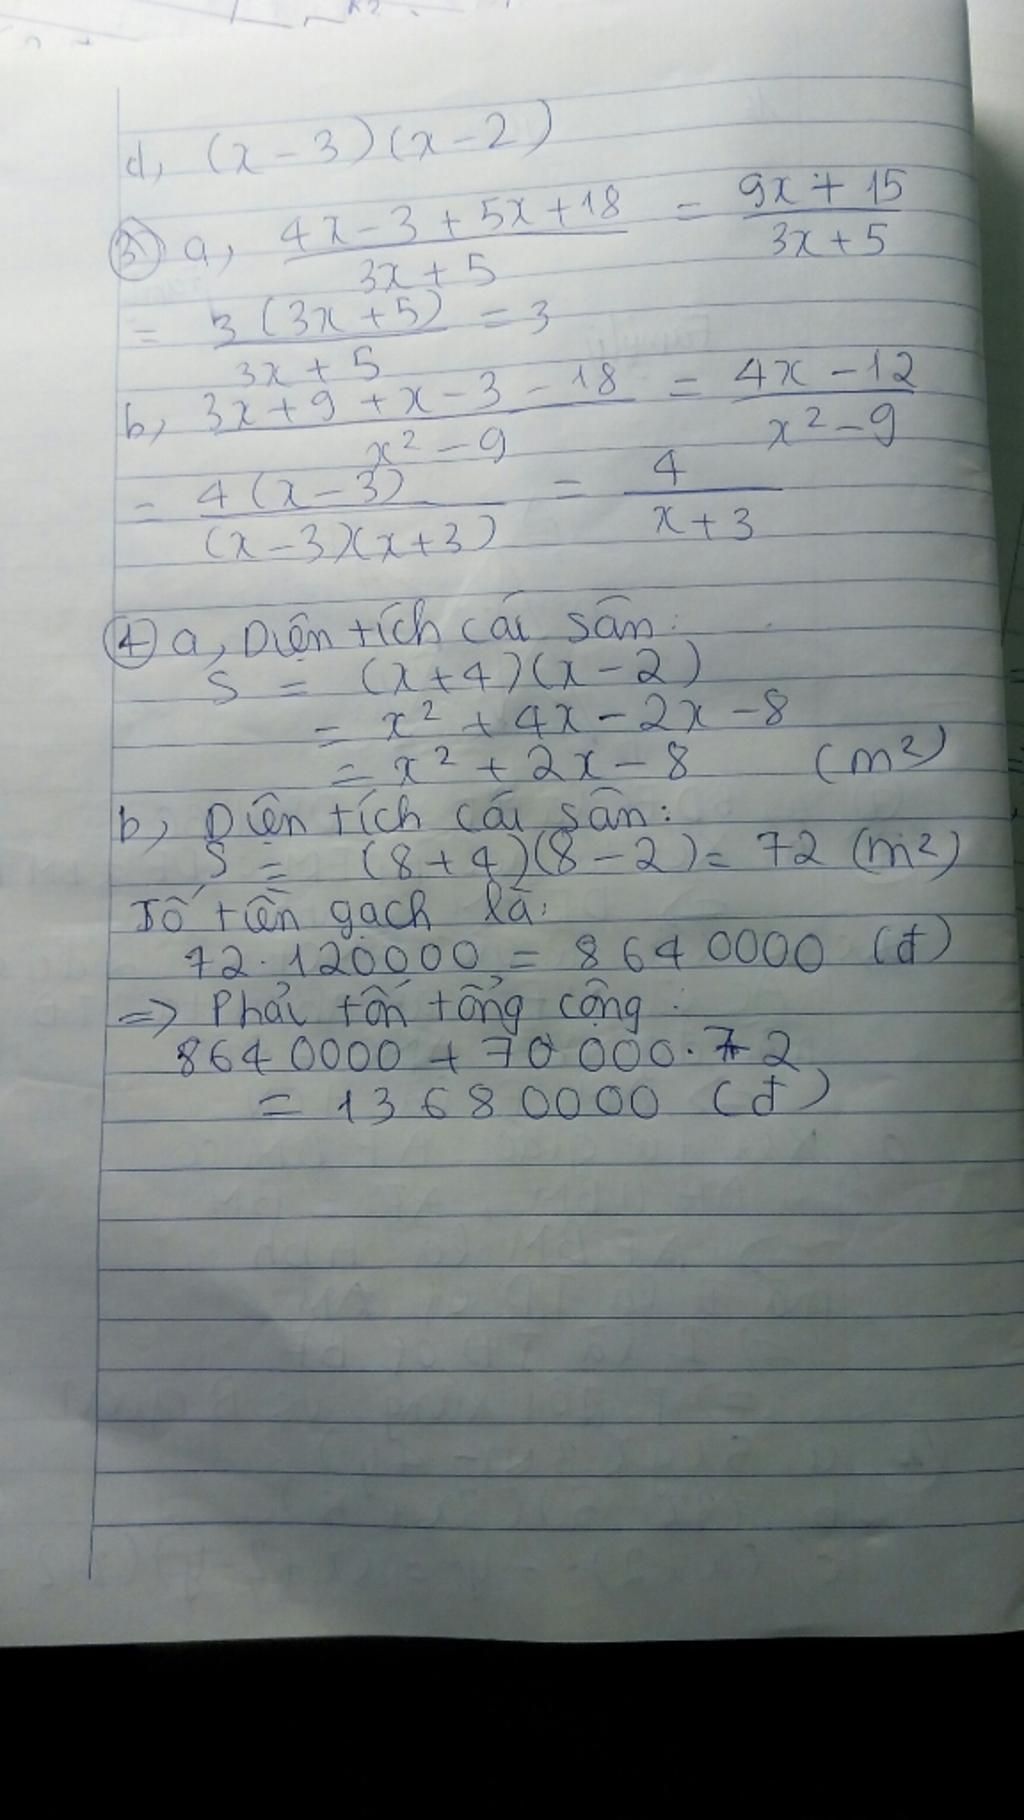 d, (x-3)(x-2)
③ a, (4x-3+5x+18)/(3x+5) = (9x+15)/(3x+5)
= 3(3x+5)/(3x+5) = 3
b, (3x+9+x-3-18)/(x²-9) = (4x-12)/(x²-9)
= 4(x-3)/((x-3)(x+3)) = 4/(x+3)
④ a, Diện tích cái sân:
S = (x+4)(x-2)
= x² + 4x - 2x - 8
= x² + 2x - 8 (m²)
b, Diện tích cái sân:
S = (8+4)(8-2) = 72 (m²)
Số tiền gạch là:
72.120000 = 8640000 (đ)
=> Phải tốn tổng cộng:
8640000 + 70000.72
= 13680000 (đ)